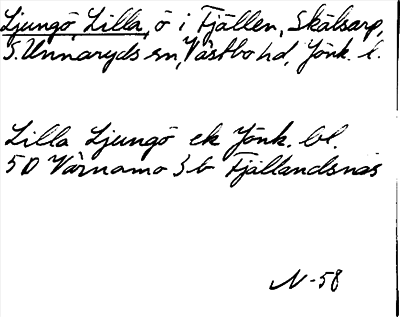 Ljungö, Lilla, ö i Fjällen, Skålsarp,
S. Unnaryds sn, Västbo hd, Jönk. l.
Lilla Ljungö ek Jönk. bl.
5D Värnamo 3b Fjällandsnäs
N-58